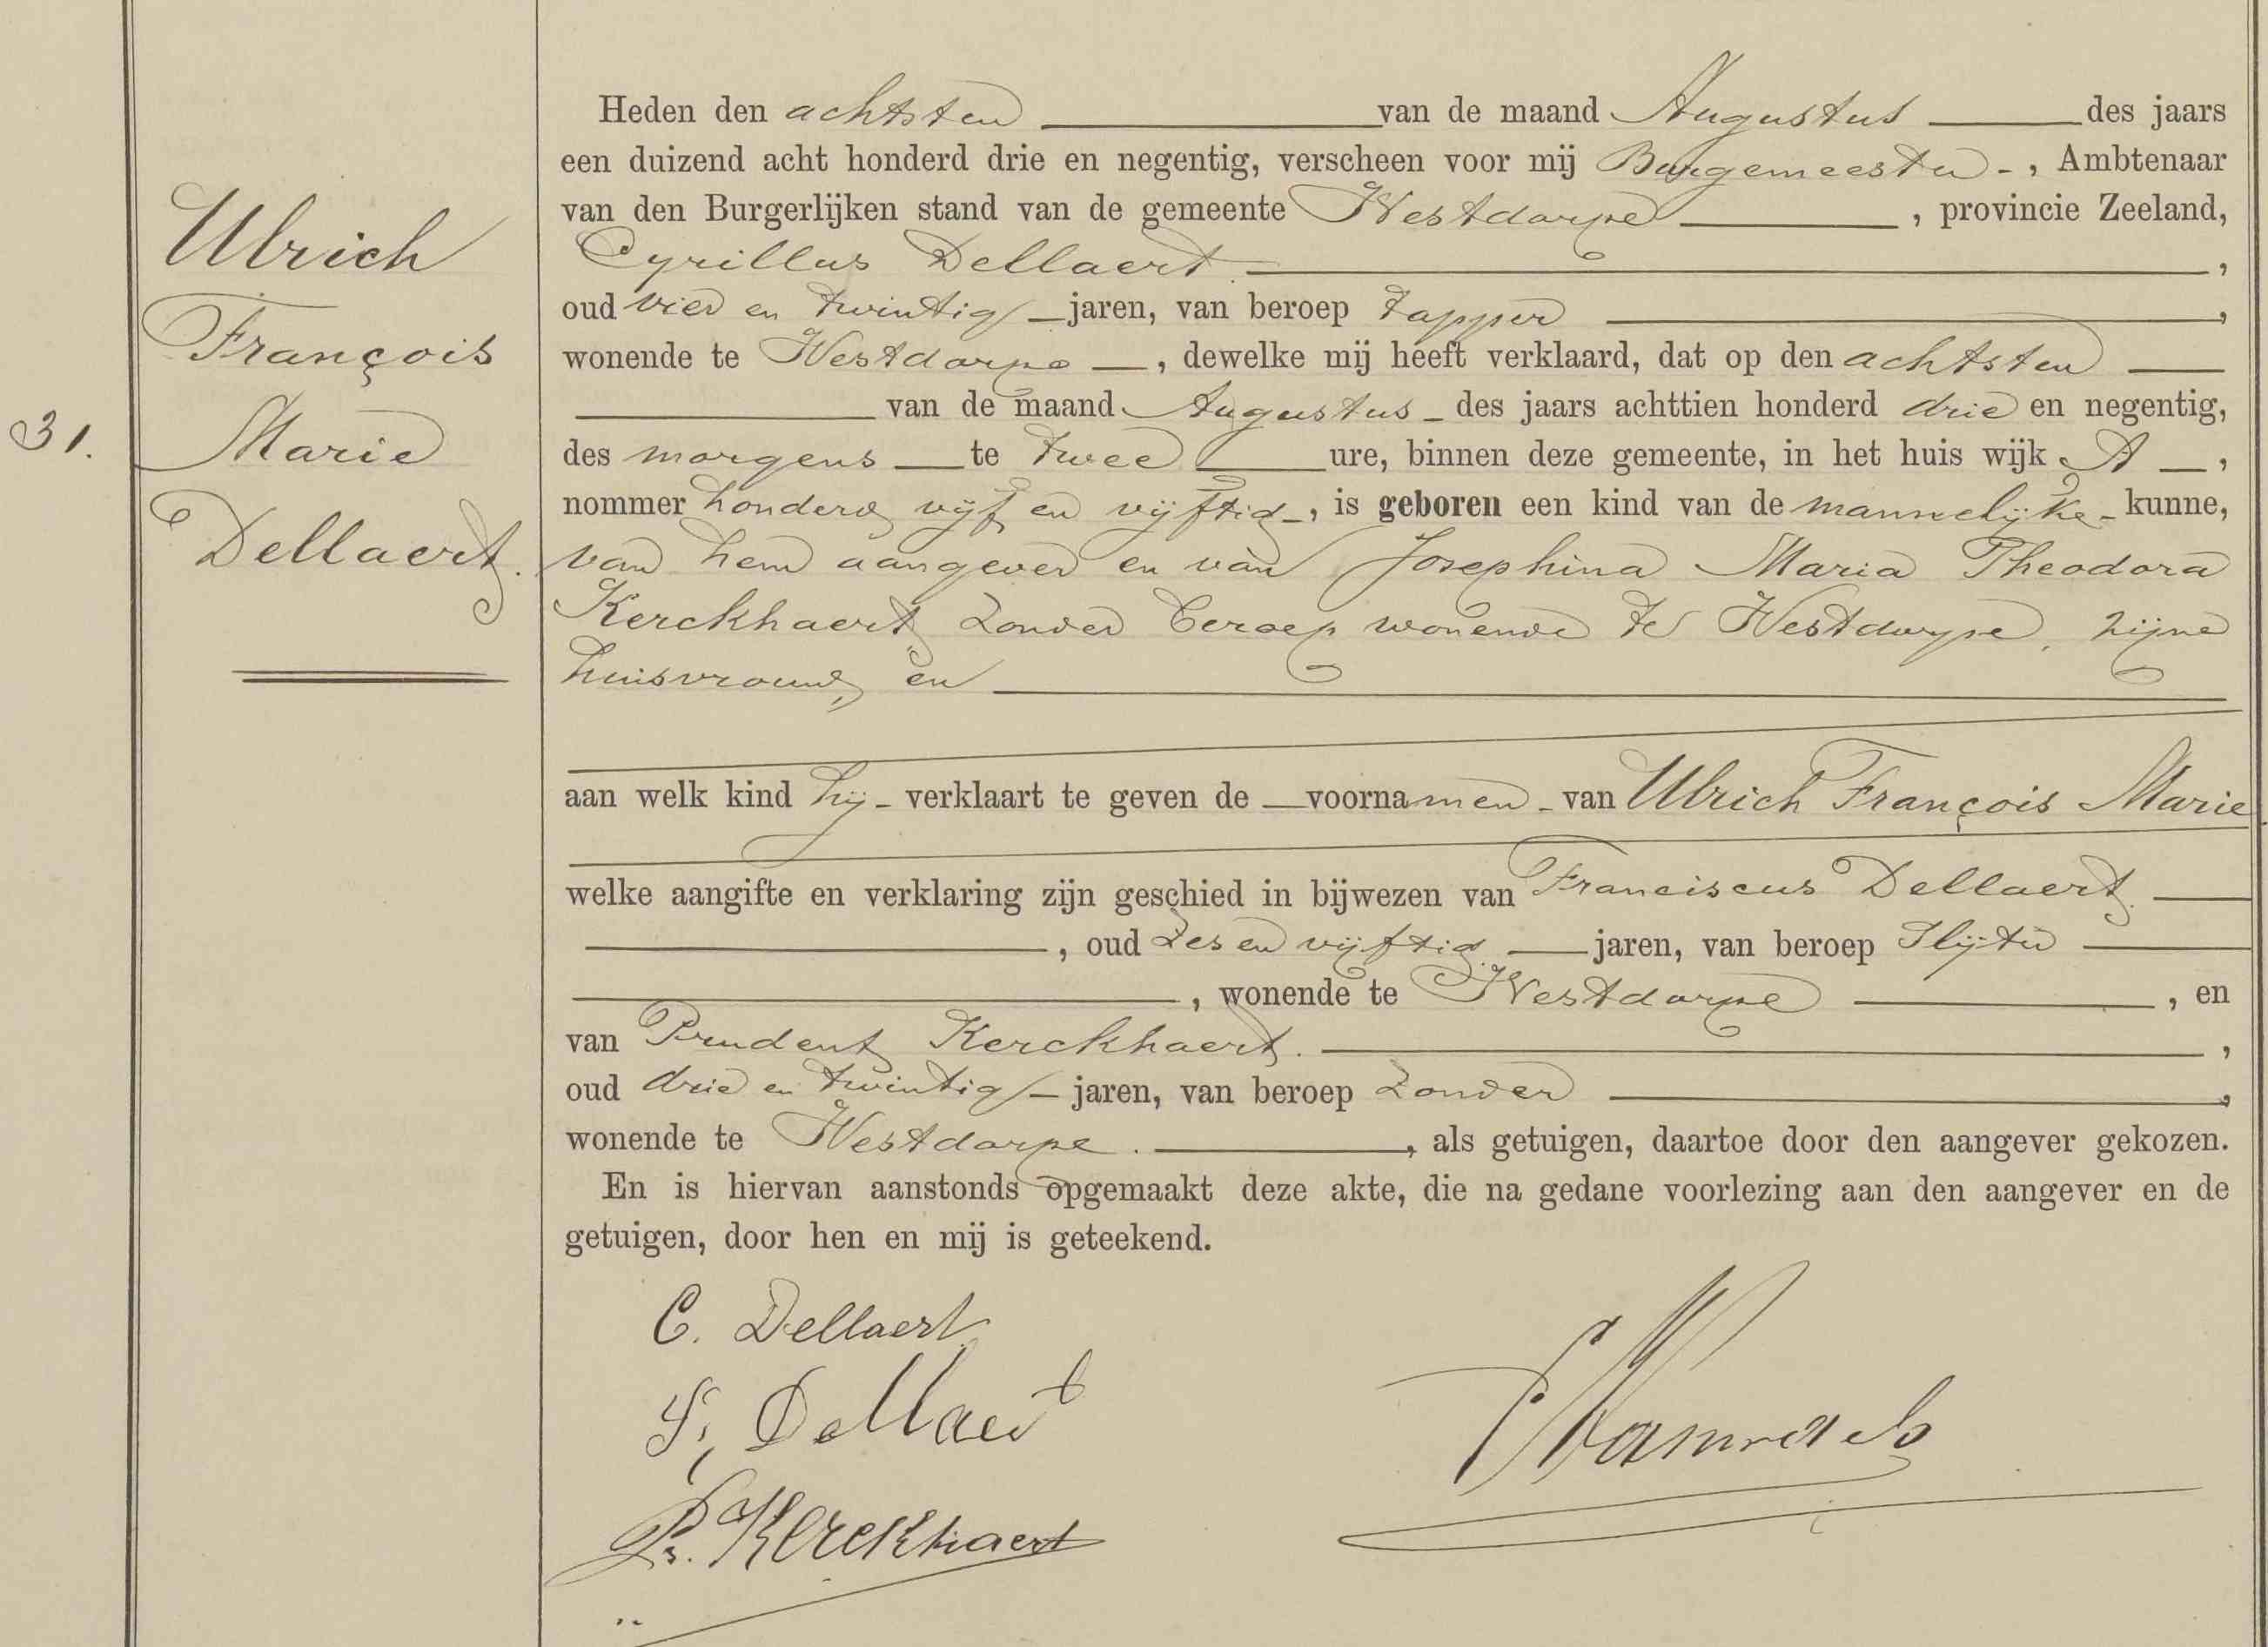 31.
Ulrich
François
Marie
Dellaert.
Heden den achtsten van de maand Augustus des jaars
een duizend acht honderd drie en negentig, verscheen voor mij Burgemeester -, Ambtenaar
van den Burgerlijken stand van de gemeente Westdorpe, provincie Zeeland,
Cyrillus Dellaert,
oud vier en twintig jaren, van beroep tapper,
wonende te Westdorpe, dewelke mij heeft verklaard, dat op den achtsten
van de maand Augustus des jaars achttien honderd drie en negentig,
des morgens te twee ure, binnen deze gemeente, in het huis wijk A,
nommer honderd vijf en vijftig, is geboren een kind van de mannelijke kunne,
van hem aangever en van Josephina Maria Theodora
Kerckhaert, zonder beroep wonende te Westdorpe, zijne
huisvrouw, en
aan welk kind hij verklaart te geven de voornamen van Ulrich François Marie
welke aangifte en verklaring zijn geschied in bijwezen van Franciscus Dellaert.
, oud zes en vijftig jaren, van beroep Slijter
, wonende te Westdorpe, en
van Prudent Kerckhaert.,
oud drie en twintig jaren, van beroep zonder,
wonende te Westdorpe., als getuigen, daartoe door den aangever gekozen.
En is hiervan aanstonds opgemaakt deze akte, die na gedane voorlezing aan den aangever en de
getuigen, door hen en mij is geteekend.
C. Dellaert
Dellaert
Pr. Kerckhaert